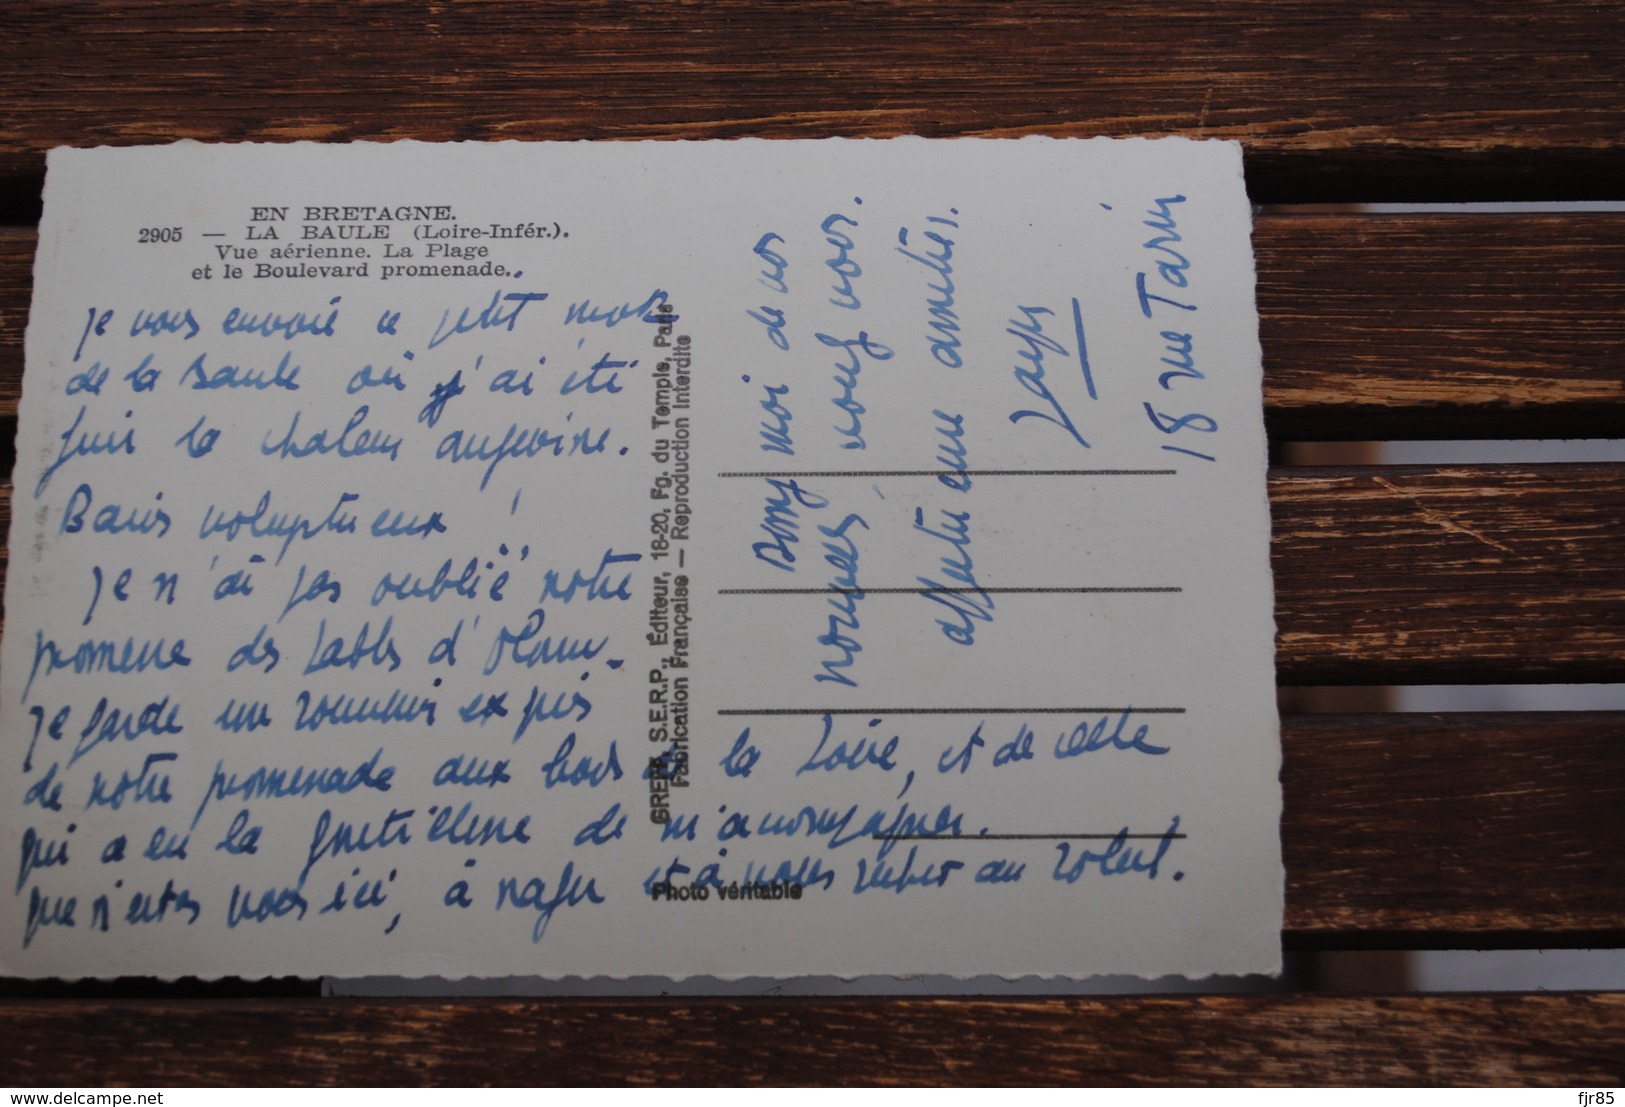 EN BRETAGNE.
2905 — LA BAULE (Loire-Infér.).
Vue aérienne. La Plage
et le Boulevard promenade.
je vous envoie ce petit mot
de la Baule où j'ai été
fuir la chaleur angevine.
Bains voluptueux !
je n'ai pas oublié notre
promene des Sables d'Olonne.
je garde un souvenir exquis
de notre promenade aux bords de la Loire, et de celle
qui a eu la gentillesse de m'accompagner.
que n'êtes vous ici, à nager et à vous au soleil.
Donnez moi de vos
nouvelles voulez vous.
affectueuses amitiés.
18 rue Tarin
GREFF, S.E.R.P., Éditeur, 18-20, Fg. du Temple, Paris
Fabrication Française — Reproduction Interdite
Photo véritable
www.delcampe.net
fjr85